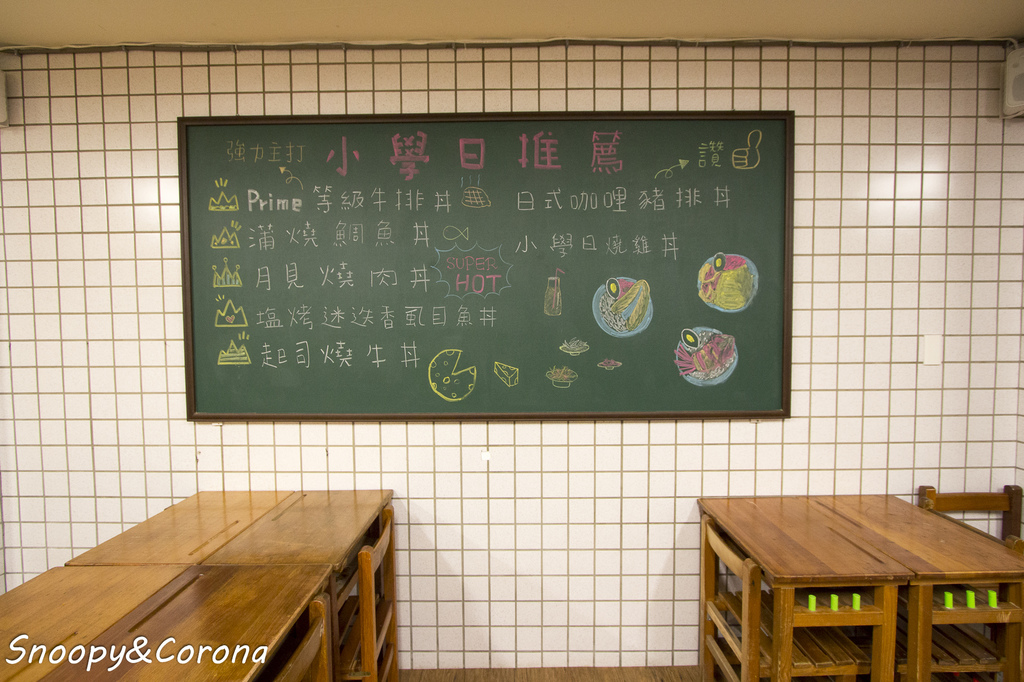 強力主打 小學日推薦 讚
Prime 等級牛排丼 日式咖哩豬排丼
蒲燒鯛魚丼 小學日燒雞丼
SUPER
HOT
月見燒肉丼
塩烤迷迭香虱目魚丼
起司燒牛丼
Snoopy&Corona